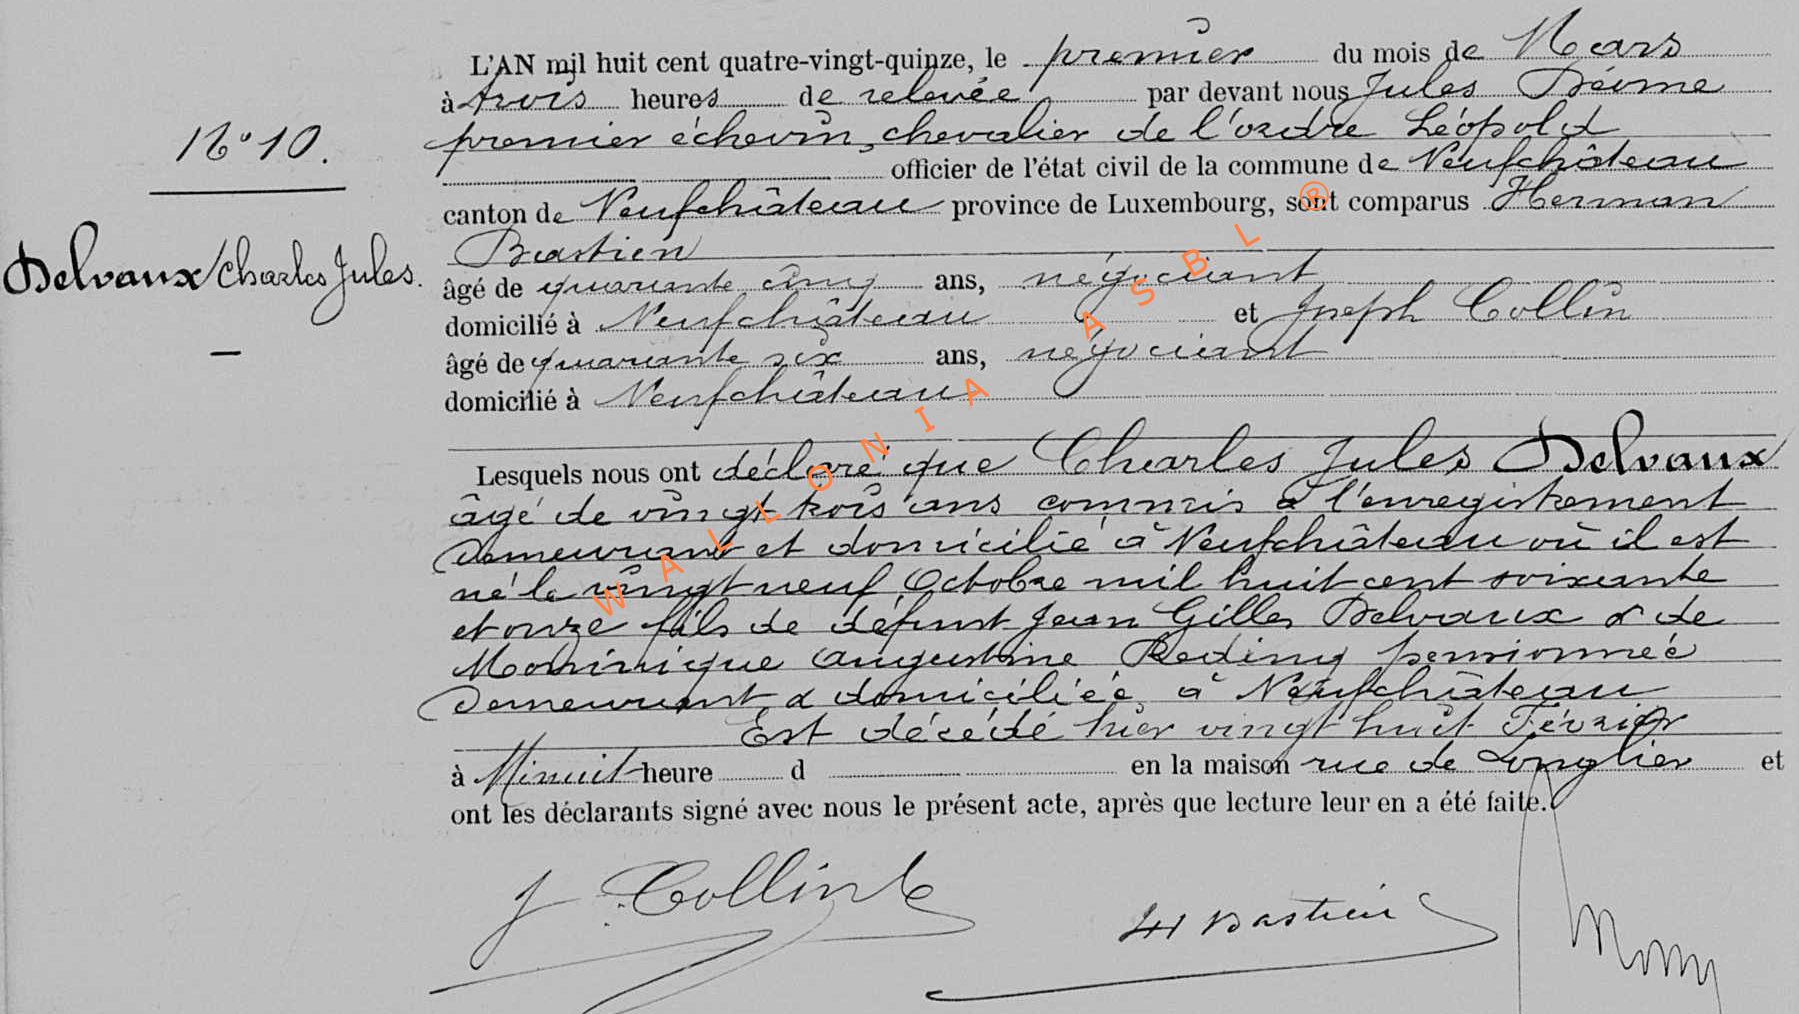 L'AN mil huit cent quatre-vingt-quinze, le premier du mois de Mars
à trois heures de relevée par devant nous Jules
premier échevin, chevalier de l'ordre Léopold
N° 10.
officier de l'état civil de la commune de Neufchâteau
canton de Neufchâteau province de Luxembourg, sont comparus Herman
Bastien
Delvaux Charles Jules.
âgé de quarante cinq ans, négociant
domicilié à Neufchâteau et Joseph Collin
âgé de quarante six ans, négociant
domicilié à Neufchâteau
Lesquels nous ont déclaré que Charles Jules Delvaux
âgé de vingt trois ans commis à l'enregistrement
demeurant et domicilié à Neufchâteau où il est
né le vingt neuf Octobre mil huit cent soixante
et onze fils de défunt Jean Gilles Delvaux & de
Monique Augustine Reding pensionnée
demeurant & domiciliée à Neufchâteau
Est décédé hier vingt huit Février
à Minuit heure d en la maison rue de Longlier et
ont les déclarants signé avec nous le présent acte, après que lecture leur en a été faite.
J Collin
H Bastien
WALLONIA ASBL ®